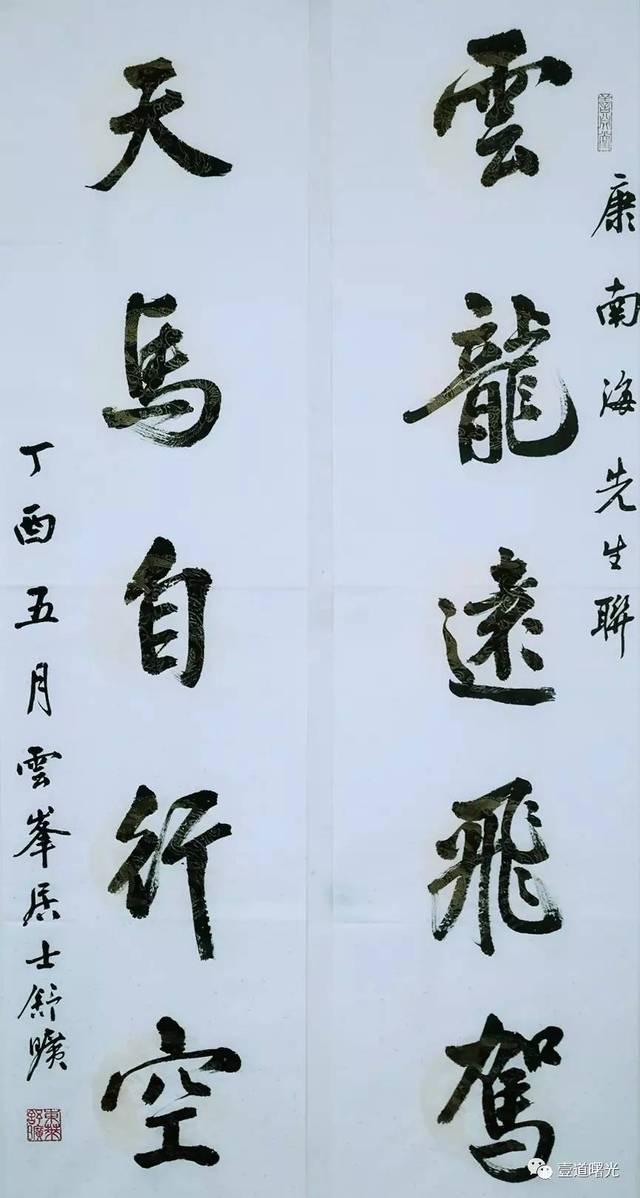 康南海先生聯
雲龍遠飛駕
天馬自行空
丁酉五月雲峯居士舒曠
壹道曙光